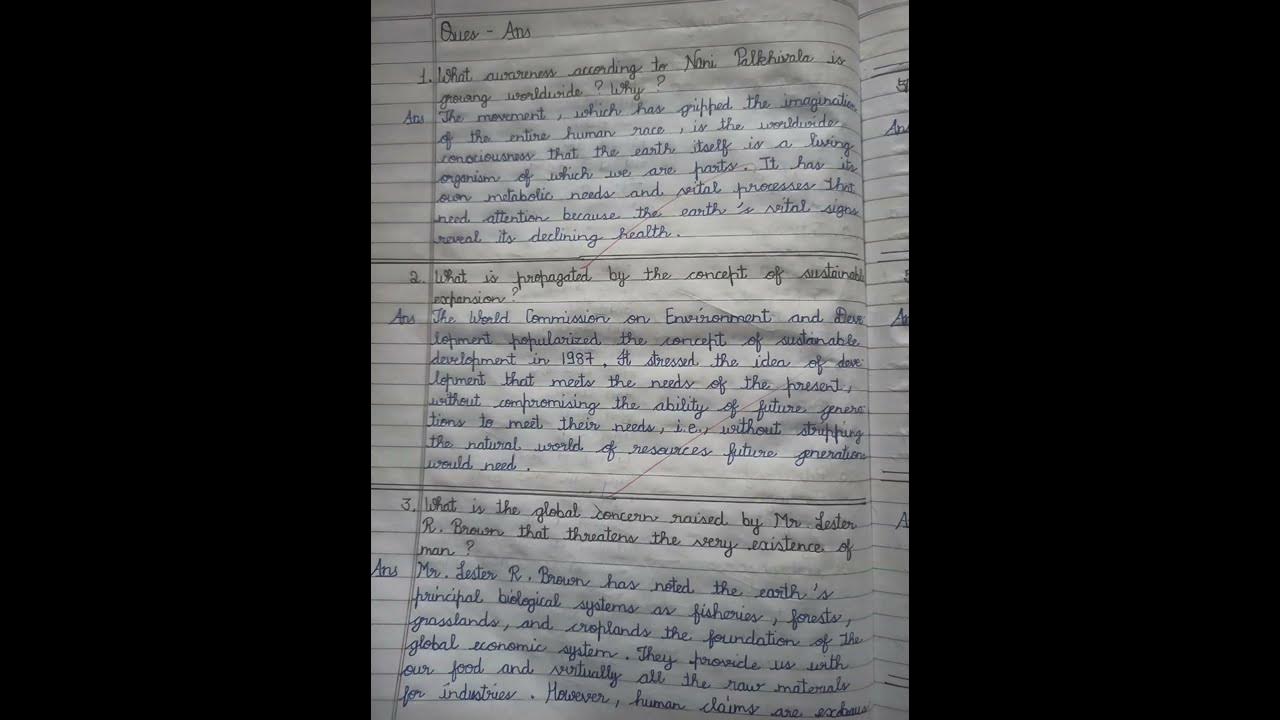 Ques - Ans
1. What awareness according to Nani Palkhivala is
growing worldwide ? Why ?
Ans The movement, which has gripped the imagination
of the entire human race, is the worldwide
consciousness that the earth itself is a living
organism of which we are parts. It has its
own metabolic needs and vital processes that
need attention because the earth's vital signs
reveal its declining health.
2. What is propagated by the concept of sustainable
expansion ?
Ans The World Commission on Environment and Deve
lopment popularized the concept of sustainable
development in 1987. It stressed the idea of deve
lopment that meets the needs of the present,
without compromising the ability of future genera
tions to meet their needs, i.e., without stripping
the natural world of resources future generations
would need.
3. What is the global concern raised by Mr. Lester
R. Brown that threatens the very existence of
man ?
Ans Mr. Lester R. Brown has noted the earth's
principal biological systems as fisheries, forests,
grasslands, and croplands the foundation of the
global economic system. They provide us with
our food and virtually all the raw materials
for industries. However, human claims are
5
Ans
5
An
A